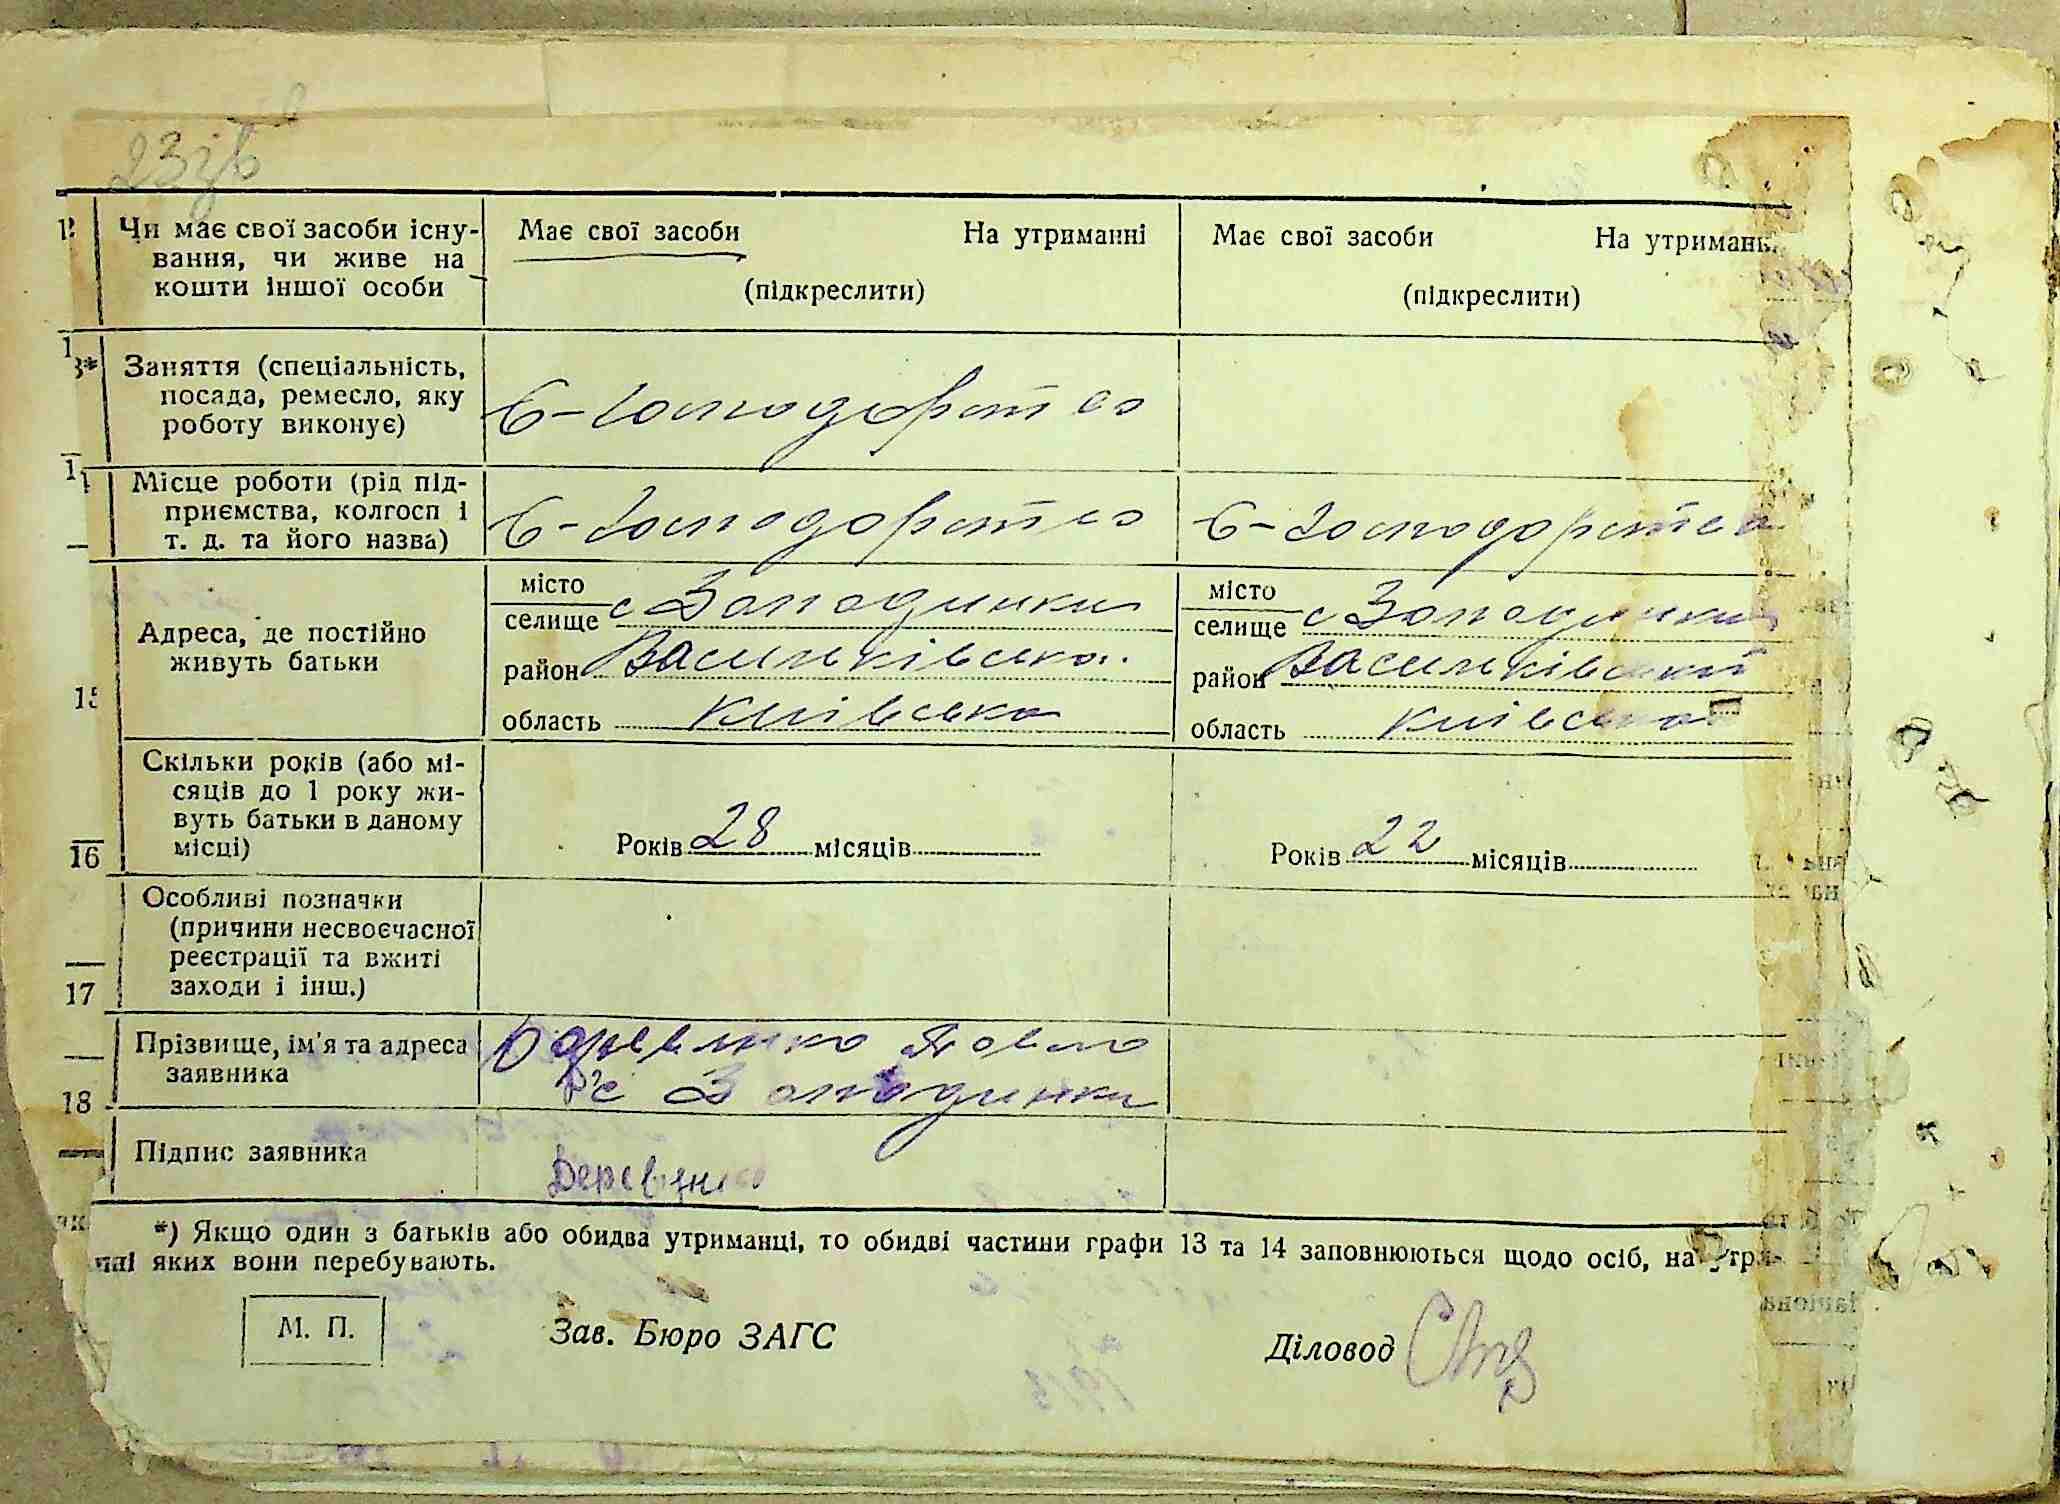 23зв
12 Чи має свої засоби існу-
вання, чи живе на
кошти іншої особи
Має свої засоби На утриманні
(підкреслити)
Має свої засоби На утриманн
(підкреслити)
13* Заняття (спеціальність,
посада, ремесло, яку
роботу виконує)
С-господарство
14 Місце роботи (рід під-
приємства, колгосп і
т. д. та його назва)
С-господарство
С-господарство
15 Адреса, де постійно
живуть батьки
місто
селище с Западинки
район Васильківськ
область Київська
місто
селище с Западинки
район Васильківський
область Київська
16 Скільки років (або мі-
сяців до 1 року жи-
вуть батьки в даному
місці)
Років 28 місяців
Років 22 місяців
17 Особливі позначки
(причини несвоєчасної
реєстрації та вжиті
заходи і інш.)
18 Прізвище, ім'я та адреса
заявника
Павло
с Западинки
Підпис заявника
*) Якщо один з батьків або обидва утриманці, то обидві частини графи 13 та 14 заповнюються щодо осіб, на утри-
нні яких вони перебувають.
М. П.
Зав. Бюро ЗАГС
Діловод